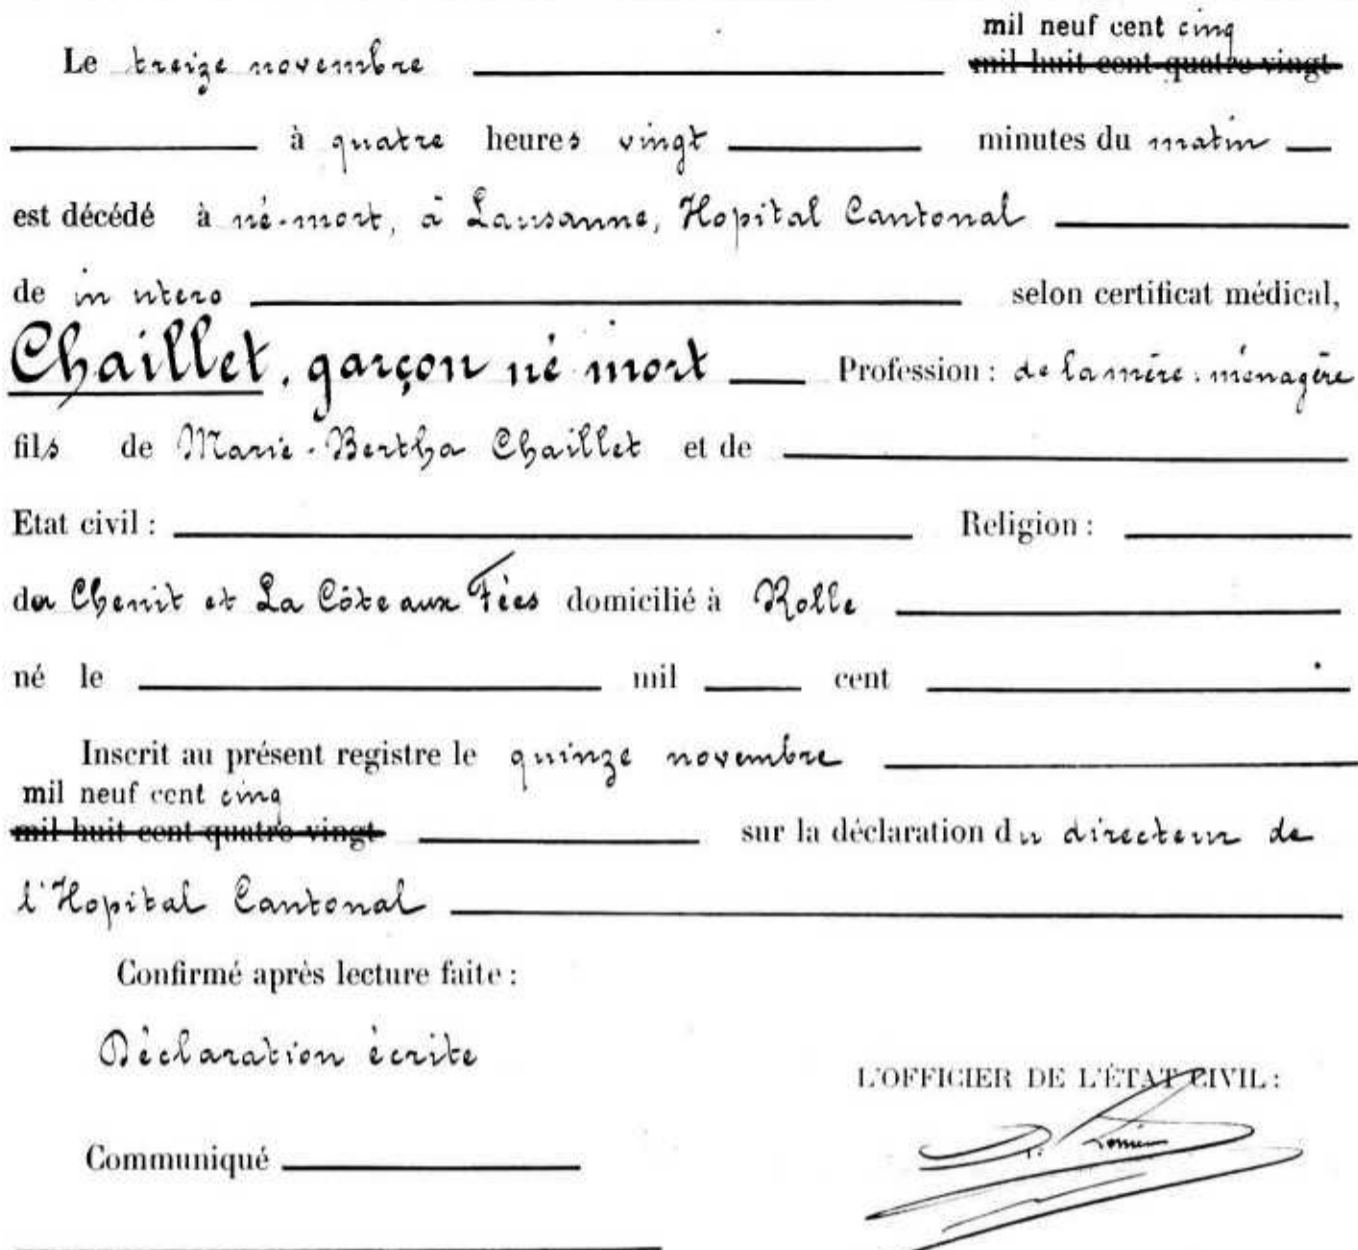 mil neuf cent cinq
Le treize novembre mil huit cent quatre-vingt
à quatre heures vingt minutes du matin
est décédé à né-mort, à Lausanne, Hopital Cantonal
de in utero selon certificat médical,
Chaillet, garçon né mort Profession : de la mère : ménagère
fils de Marie-Bertha Chaillet et de
Etat civil : Religion :
du Chenit et La Côte aux Fées domicilié à Rolle
né le mil cent
Inscrit au présent registre le quinze novembre
mil neuf cent cinq
mil huit cent quatre-vingt sur la déclaration du directeur de
l'Hopital Cantonal
Confirmé après lecture faite :
Déclaration écrite
L'OFFICIER DE L'ÉTAT CIVIL :
Communiqué